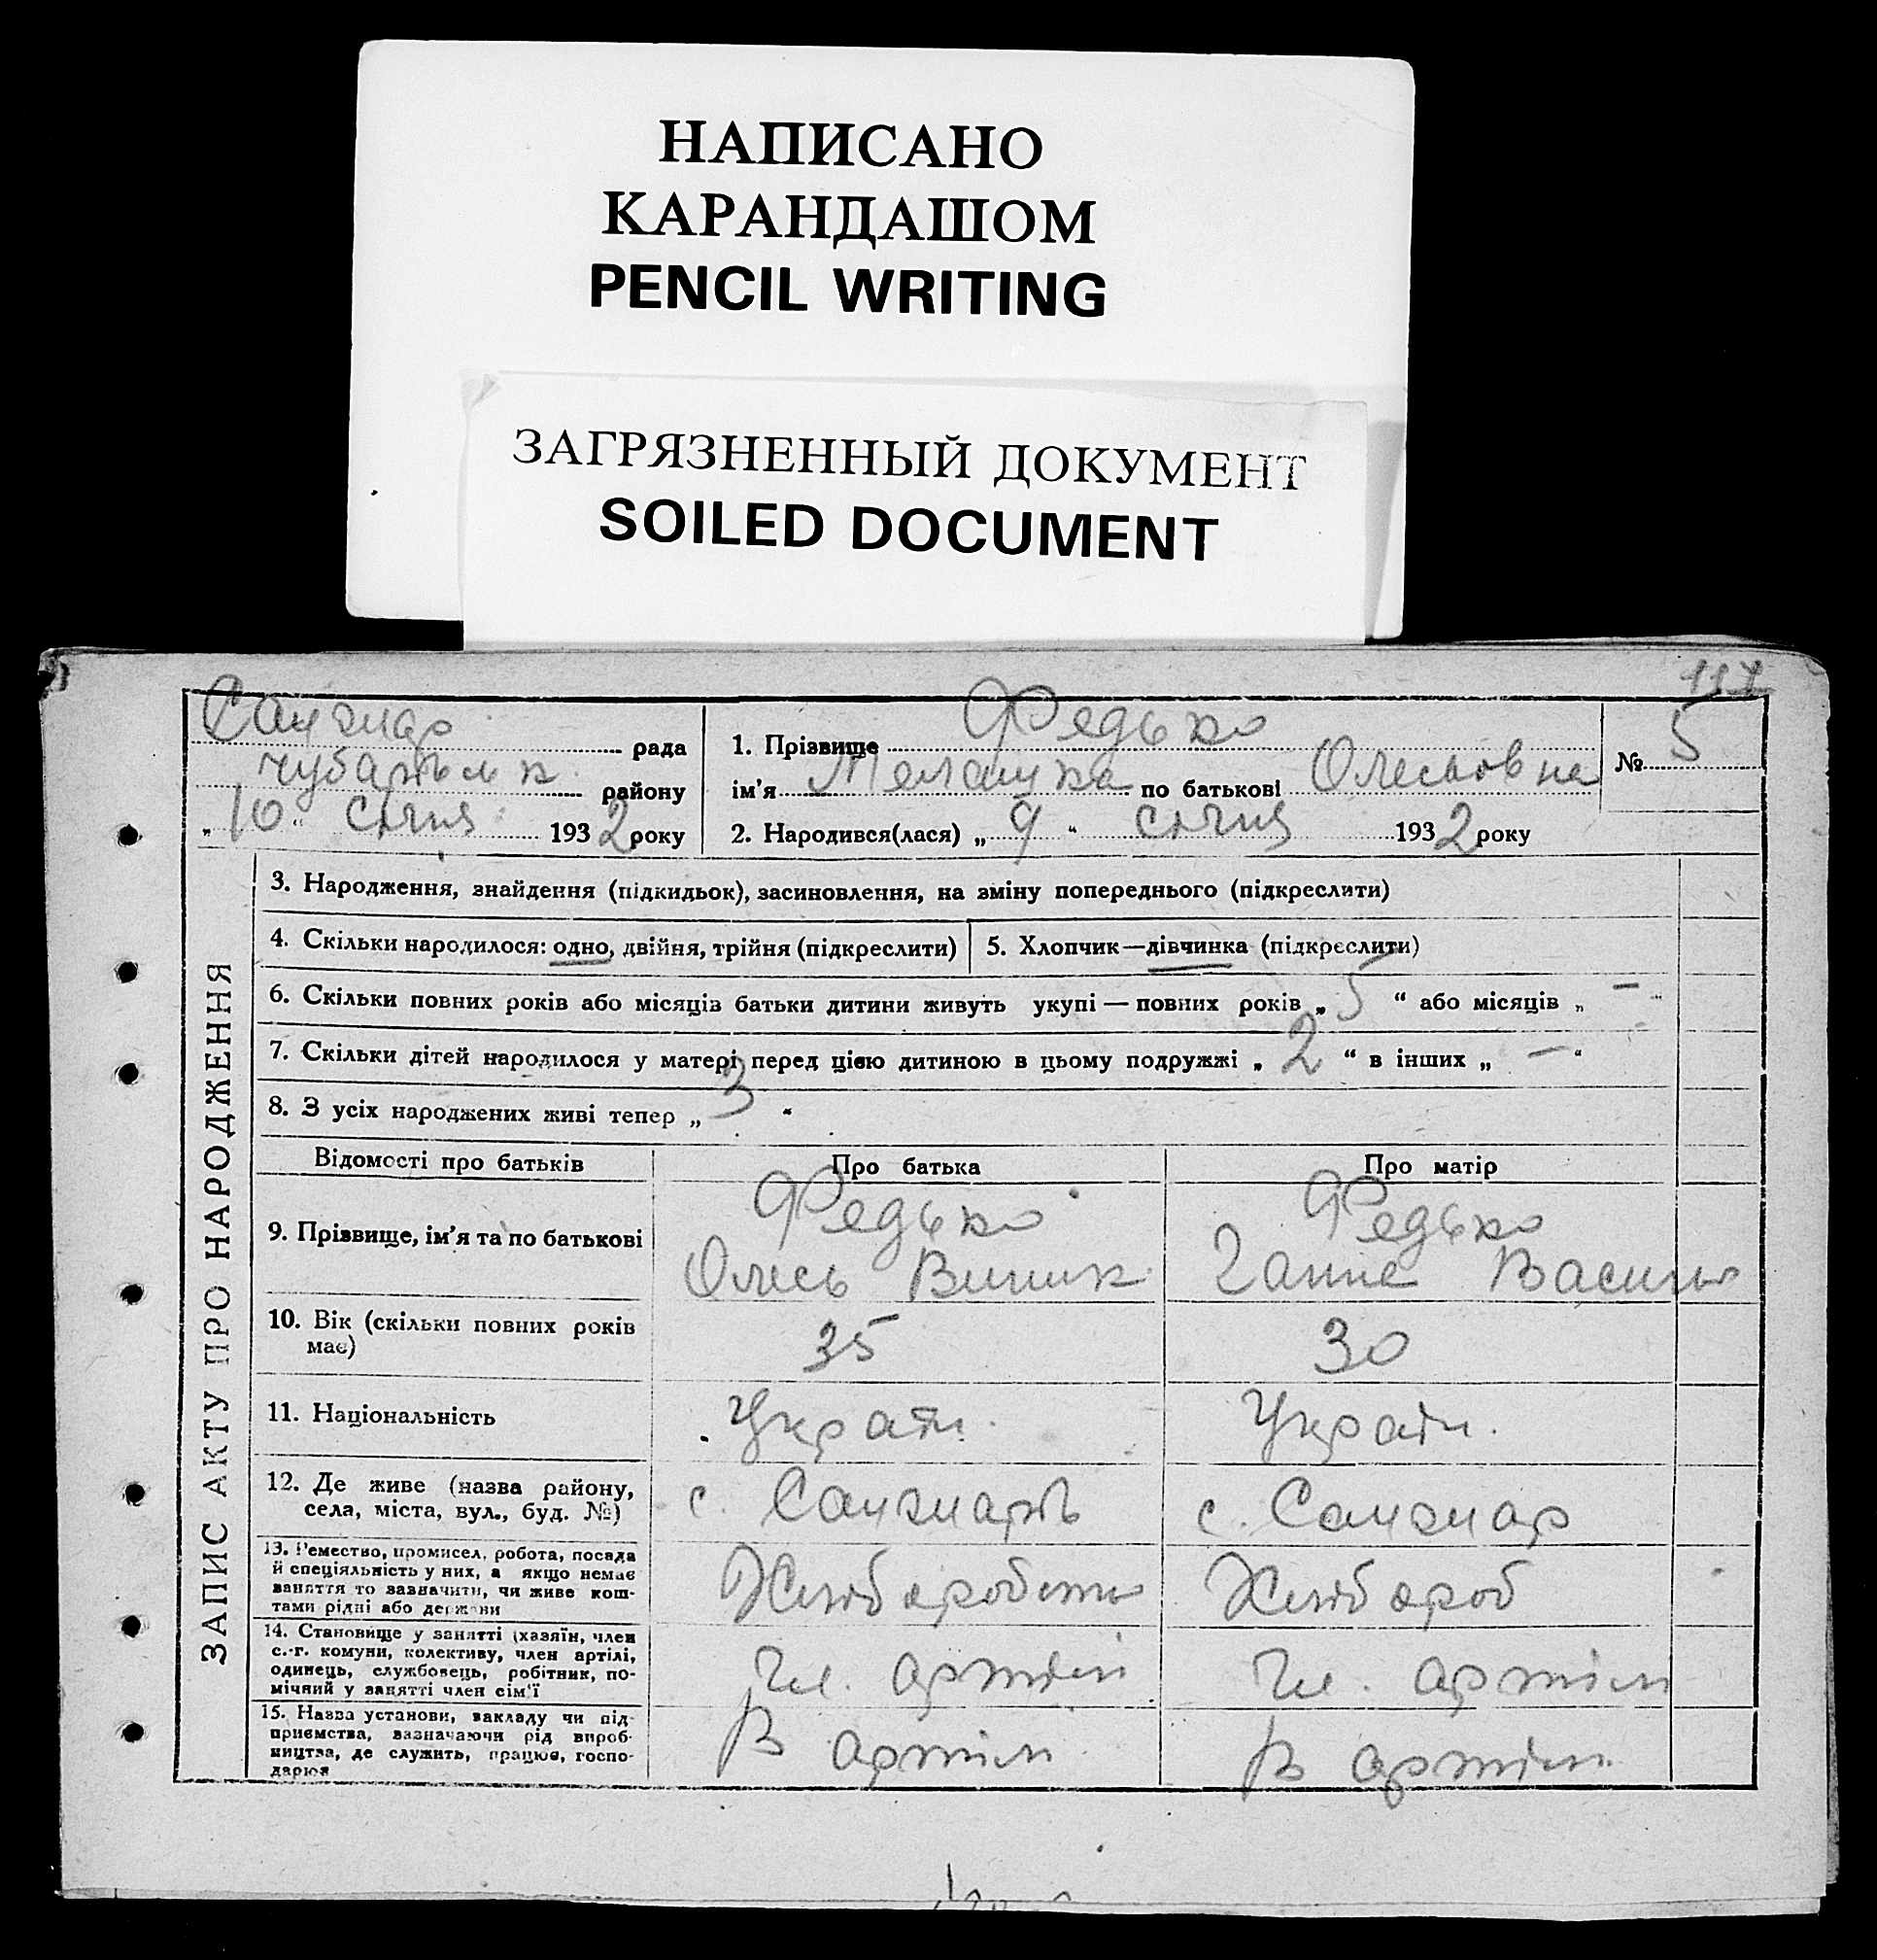 НАПИСАНО
КАРАНДАШОМ
PENCIL WRITING
ЗАГРЯЗНЕННЫЙ ДОКУМЕНТ
SOILED DOCUMENT
117
рада
чубарьлк району
„10“ січня 1932 року
1. Прізвище Федько
ім'я Мелашка по батькові Олесьовна
2. Народився(лася) „9“ січня 1932 року
№ 5
ЗАПИС АКТУ ПРО НАРОДЖЕННЯ
3. Народження, знайдення (підкидьок), засиновлення, на зміну попереднього (підкреслити)
4. Скільки народилося: одно, двійня, трійня (підкреслити)
5. Хлопчик—дівчинка (підкреслити)
6. Скільки повних років або місяців батьки дитини живуть укупі — повних років „5“ або місяців „—“
7. Скільки дітей народилося у матері перед цією дитиною в цьому подружжі „2“ в інших „—“
8. З усіх народжених живі тепер „3“
Відомості про батьків
Про батька
Про матір
9. Прізвище, ім'я та по батькові
Федько
Олесь
Федько
Ганна Василь
10. Вік (скільки повних років
має)
35
30
11. Національність
Україн.
Україн.
12. Де живе (назва району,
села, міста, вул., буд. №)
с. Санжарь
с. Санжар
13. Ремество, промисел, робота, посада
й спеціяльність у них, а якщо немає
заняття то зазначити, чи живе кош-
тами рідні або держави
Хлібороб
Хлібороб
14. Становище у занятті (хазяїн, член
с.-г. комуни, колективу, член артілі,
одинець, службовець, робітник, по-
мічний у занятті член сім'ї
Чл. артіли
Чл. артіли
15. Назва установи, закладу чи під-
приємства, зазначаючи рід вироб-
ництва, де служить, працює, госпо-
дарює
В артіли
В артіли